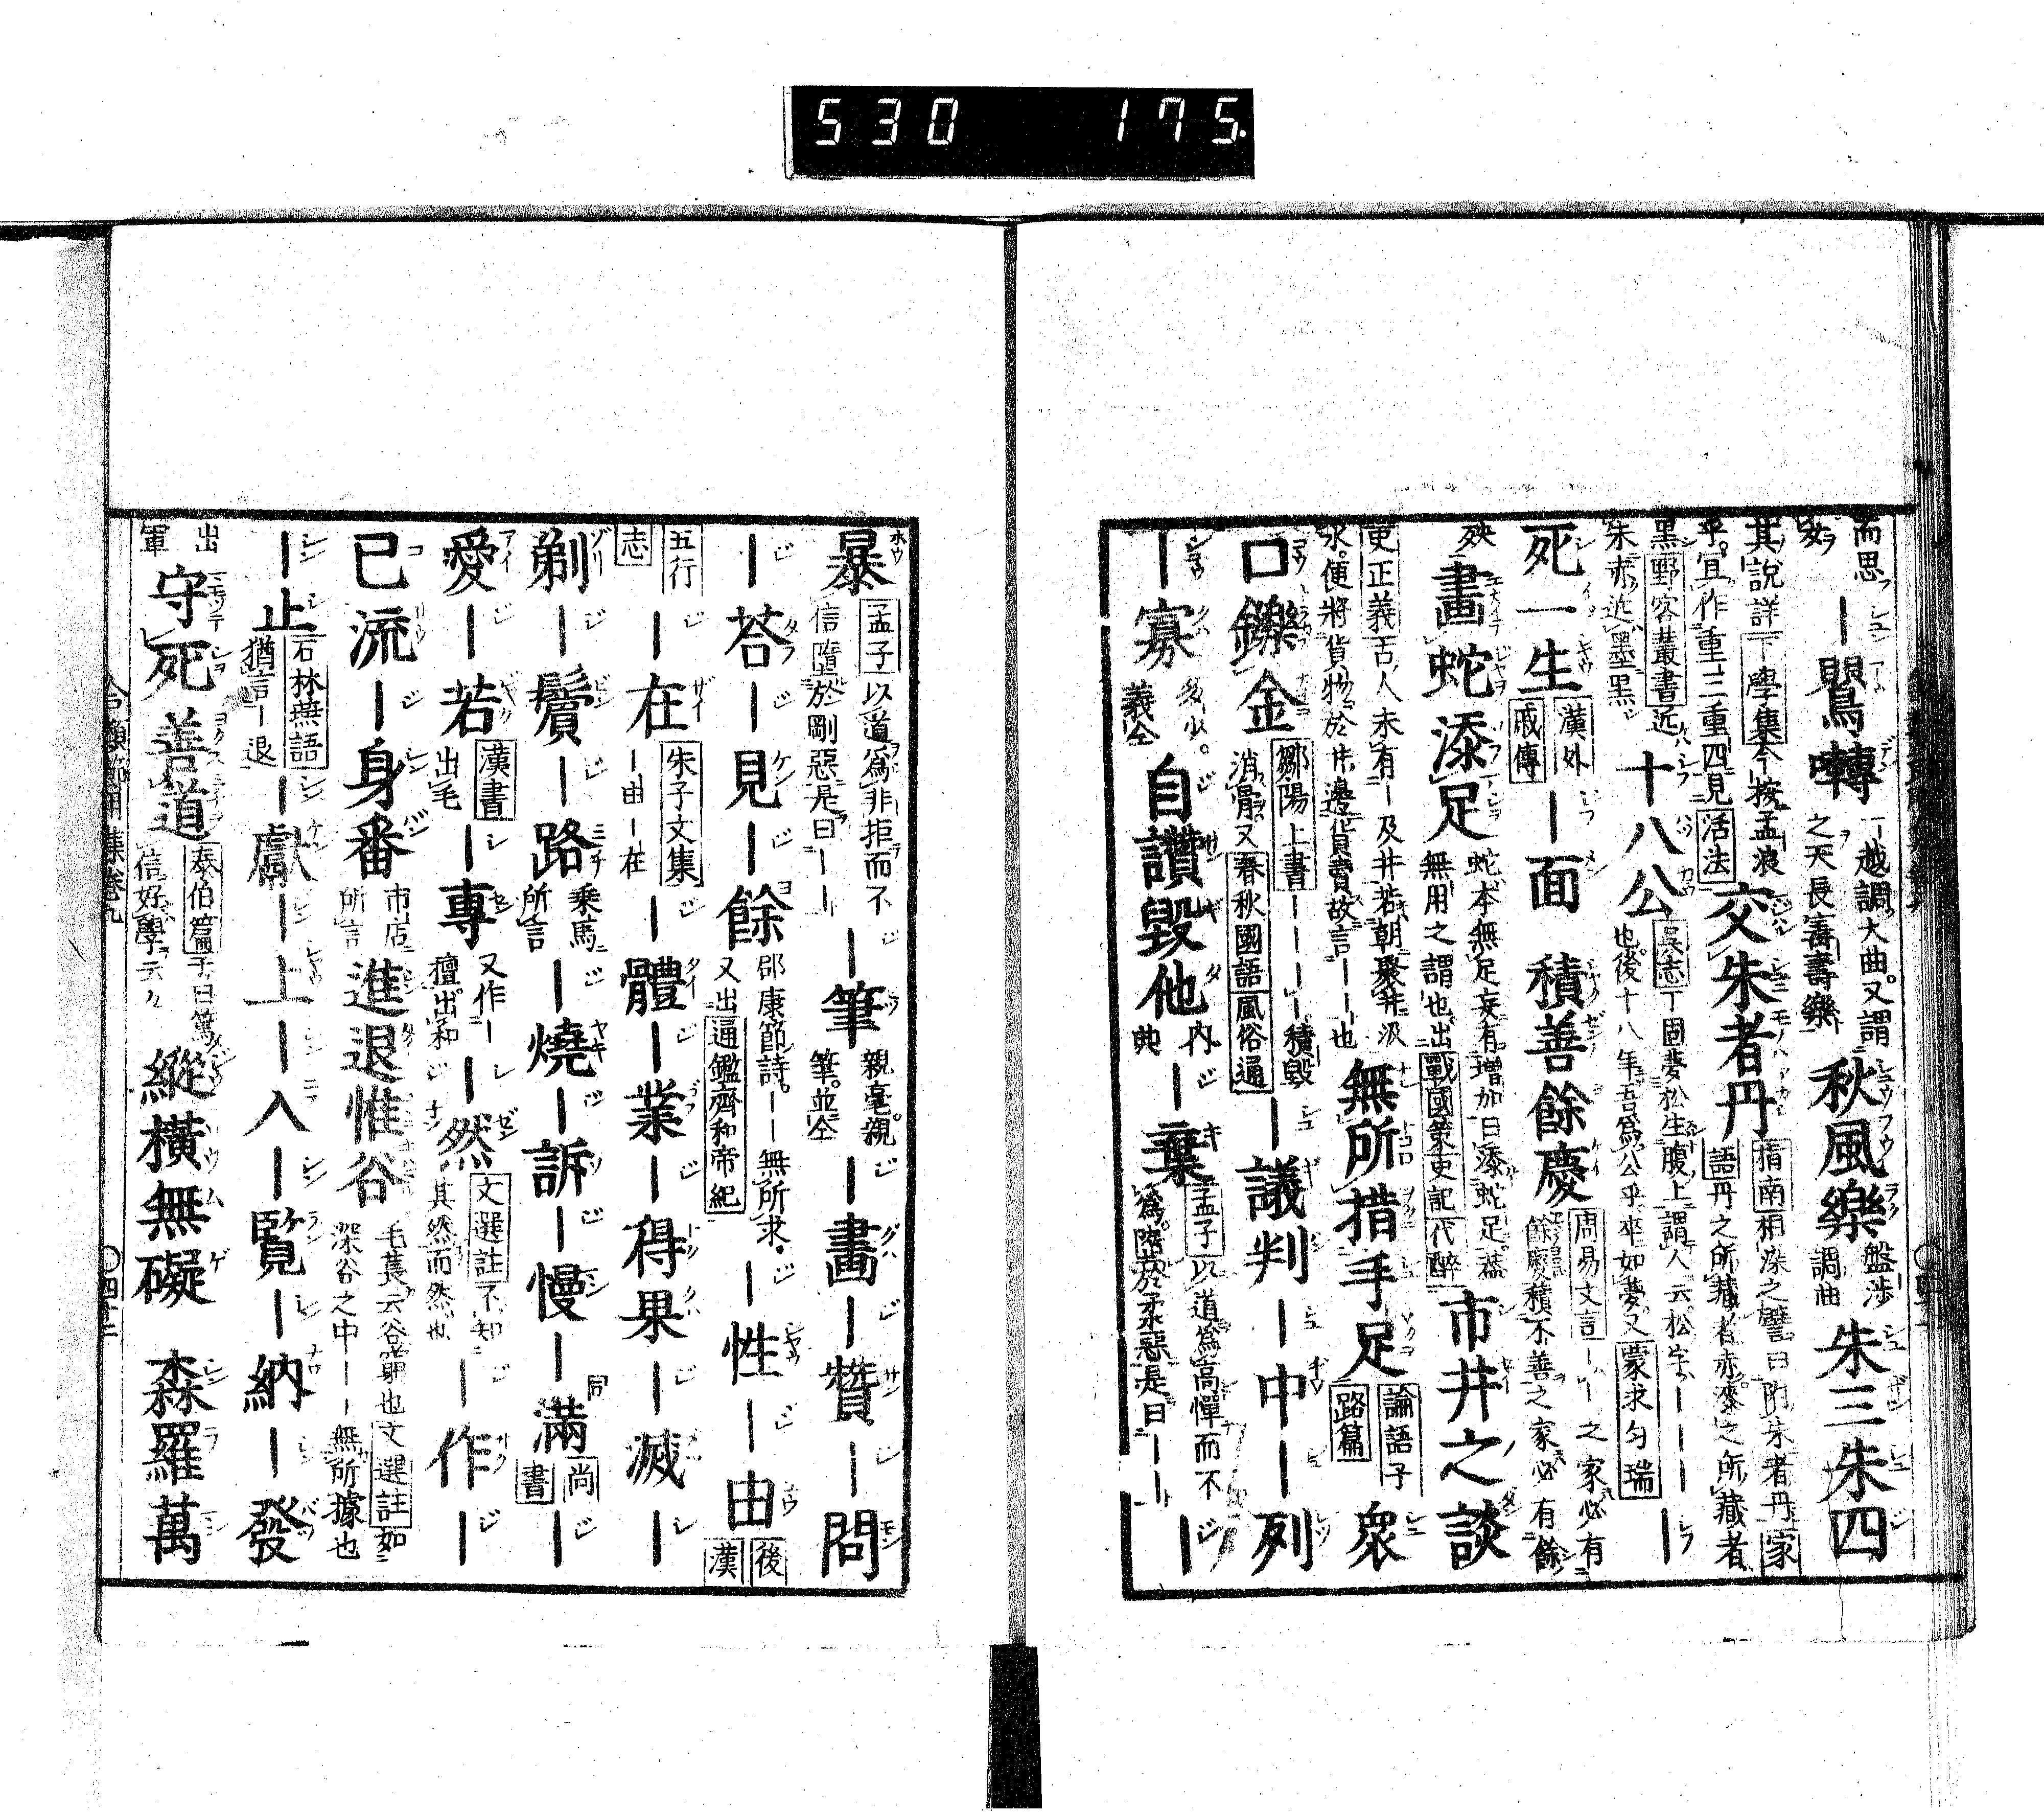 530 175
而思
安
｜鸎囀
｜越調大曲。又謂
之天長壽樂
秋風樂
盤渉
調曲
朱三朱四
其說詳下學集今按孟浪
乎。宜作重三重四見活法
交朱者丹
指南相染之譬曰附朱者丹家
語丹之所藏者赤漆之所藏者
黑野客叢書近
朱赤近墨黑
十八公
吳志丁固夢松生腹上謂人云松字｜｜｜
也後十八年吾爲公乎卒如夢又蒙求勻瑞
｜
死一生
漢外
戚傳
｜面
積善餘慶
周易文言｜｜之家必有
餘慶積不善之家必有餘
殃
畫蛇添足
蛇本無足妄有增加曰添蛇足蓋
無用之謂也出戰國策史記代醉
市井之談
更正義古人未有｜及井若朝聚井汲
水。便將貨物於井邊貨賣故言｜｜也
無所措手足
論語子
路篇
衆
口鑠金
鄒陽上書｜｜｜｜積毀
消骨又春秋國語風俗通
｜議判｜中｜列
｜寡
多少。
義仝
自讚毀他
內
典
｜棄
孟子以道爲高憚而不
爲陷於柔惡是曰｜｜
｜
暴
孟子以道爲非拒而不
信墮於剛惡是曰｜｜
｜筆
親毫。親
筆。並仝
｜畫｜贊｜問
｜荅｜見｜餘
邵康節詩。｜｜無所求。
又出通鑑齊和帝紀
｜性｜由
後
漢
五行
志
｜在
朱子文集
｜由｜在
｜體｜業｜得果｜滅｜
剃｜鬢｜路
乘馬
所言
｜燒｜訴｜慢｜滿
同
尚
書
｜
愛｜若
漢書
出毛
｜專
又作｜
擅出和
｜然
文選註不知
其然而然也
｜作｜
已流｜身番
市店
所言
進退惟谷
毛萇云谷窮也文選註如
深谷之中｜｜無所據也
｜止
石林燕語
猶言｜退
｜獻｜上｜入｜覽｜納｜發
出
軍
守死善道
泰伯篇子曰篤
信好學云々
縱橫無礙
森羅萬
合類節用集卷九
〇四十二